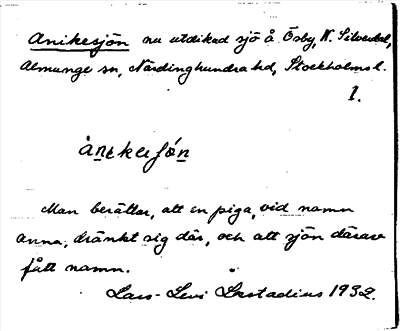 Anikesjön nu utdikad sjö å Ösby, N.
Almunge sn, Närdinghundra hd, Stockholms l.
1.
Man berättar, att en piga, vid namn
Anna, dränkt sig där, och att sjön därav
fått namn.
Lars-Levi Læstadius 1932.